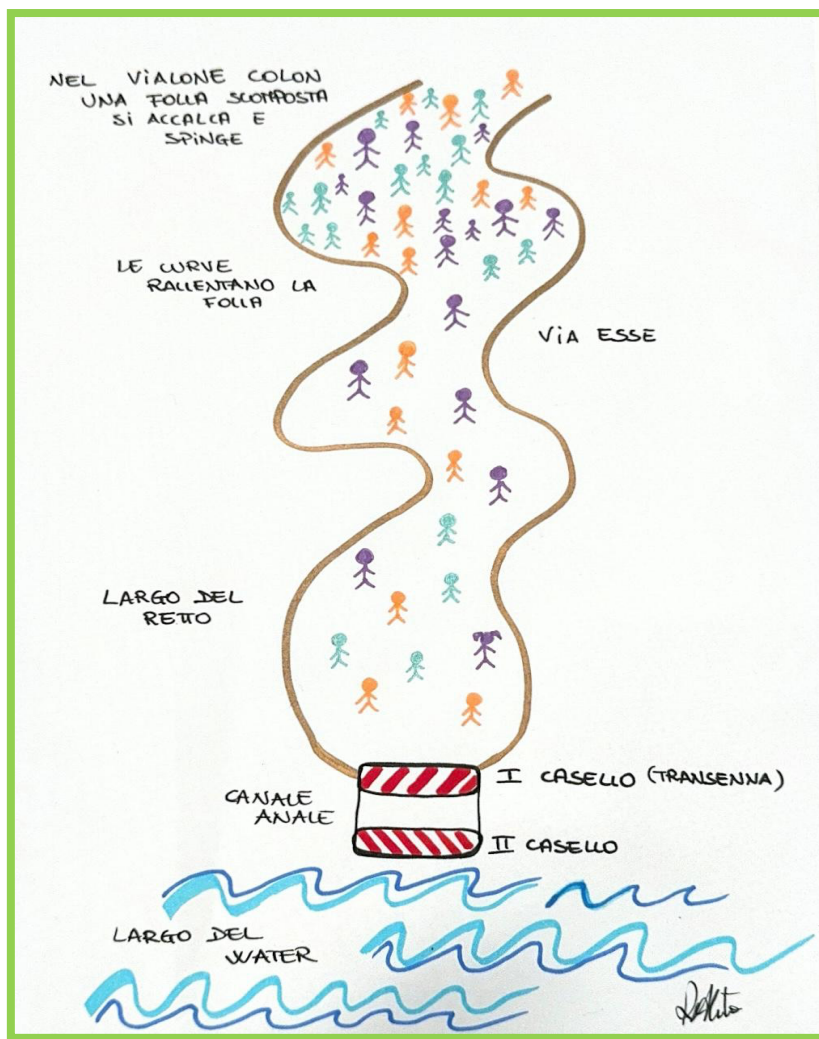 NEL VIALONE COLON
UNA FOLLA SCOMPOSTA
SI ACCALCA E
SPINGE
LE CURVE
RALLENTANO LA
FOLLA
VIA ESSE
LARGO DEL
RETTO
I CASELLO (TRANSENNA)
CANALE
ANALE
II CASELLO
LARGO DEL
WATER